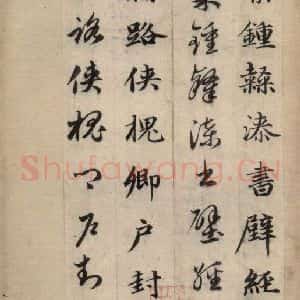 鍾隸漆書壁經
鍾隸漆書壁經
路俠槐卿户封
路俠槐卿户封
Shufawang.cn